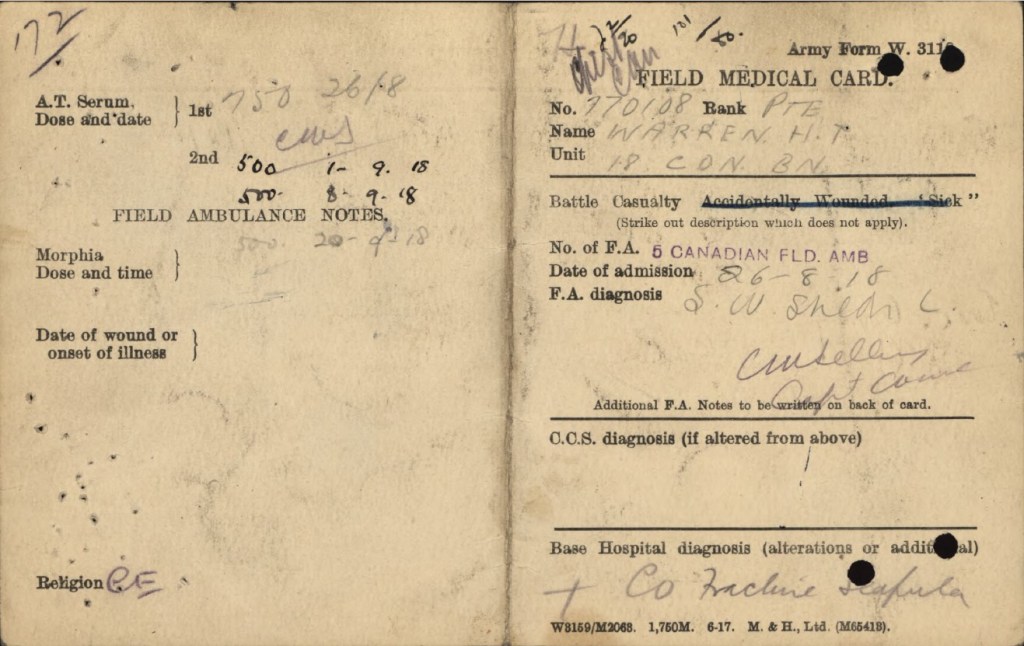 172
A.T. Serum,
Dose and date } 1st 750 26/8
CWS
2nd 500 1- 9. 18
500. 8- 9. 18
FIELD AMBULANCE NOTES.
500. 20- 9- 18
Morphia
Dose and time }
Date of wound or
onset of illness }
Religion CE
Army Form W. 311
FIELD MEDICAL CARD.
No. 770108 Rank PTE
Name WARREN H.T
Unit 18 CON. BN.
Battle Casualty Accidentally Wounded. "Sick"
(Strike out description which does not apply).
No. of F.A. 5 CANADIAN FLD. AMB
Date of admission 26-8-18
F.A. diagnosis S. W. Shldr L.
Capt
Additional F.A. Notes to be written on back of card.
C.C.S. diagnosis (if altered from above)
Base Hospital diagnosis (alterations or additional)
+ Co Fracture scapula
W3159/M2068. 1,750M. 6-17. M. & H., Ltd. (M6541B).